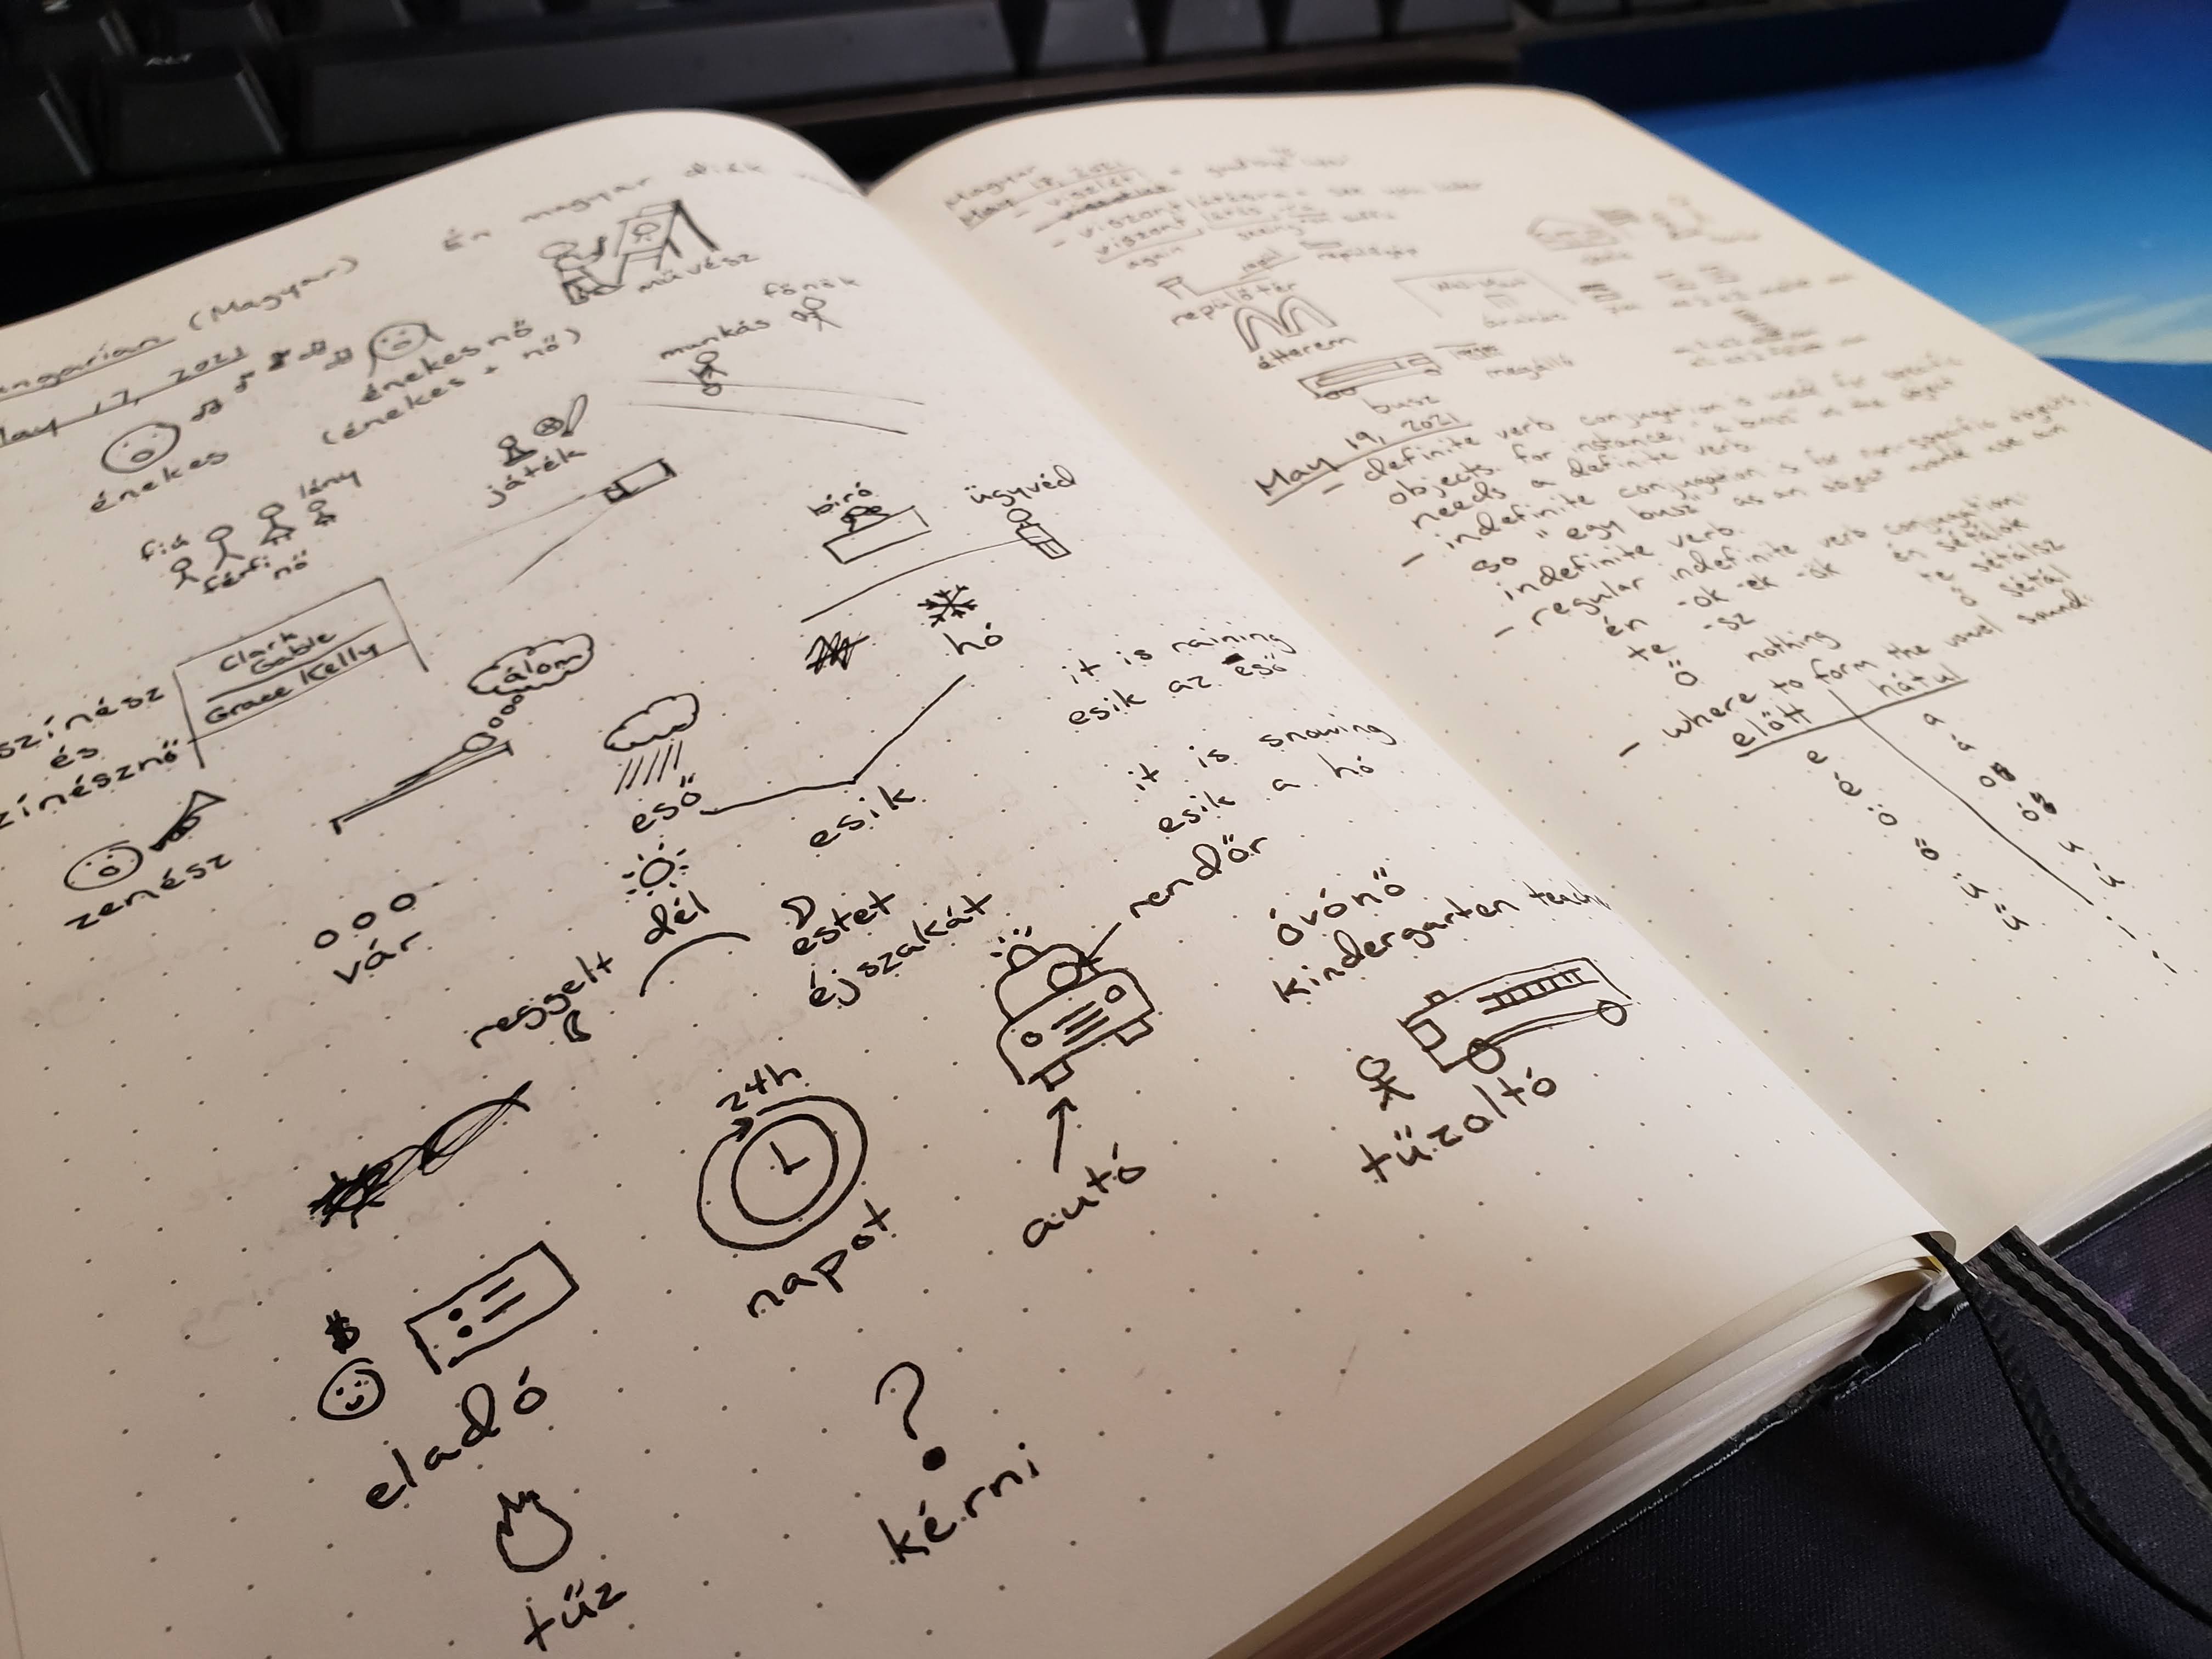 ALT
(Magyar)
May 17, 2021
Én magyar
művész
énekes
énekesnő
(énekes + nő)
munkás
főnök
fiú
férfi
nő
lány
játék
bíró
ügyvéd
színész
és
színésznő
Clark
Gable
Grace Kelly
álom
hó
eső
esik
it is raining
esik az eső
it is snowing
esik a hó
zenész
vár
reggelt
dél
estet
éjszakát
rendőr
óvónő
kindergarten
24h
napot
autó
tűzoltó
$
eladó
tűz
?
kérni
Magyar
May 18, 2021
- viszlát
- viszontlátásra = see you later
viszont
again
repülőtér
étterem
busz
megálló
May 19, 2021
- definite verb conjugation is used for specific
objects. for instance, "a busz" as the object
needs a definite verb
- indefinite conjugation is for non-specific objects,
so "egy busz" as an object would use an
indefinite verb.
- regular indefinite verb conjugation:
én -ok -ek -ök én sétálok
te -sz te sétálsz
ő nothing ő sétál
- where to form the vowel sound:
előtt hátul
e a
é á
ö o
ő ó
ü u
ű ú
i
í